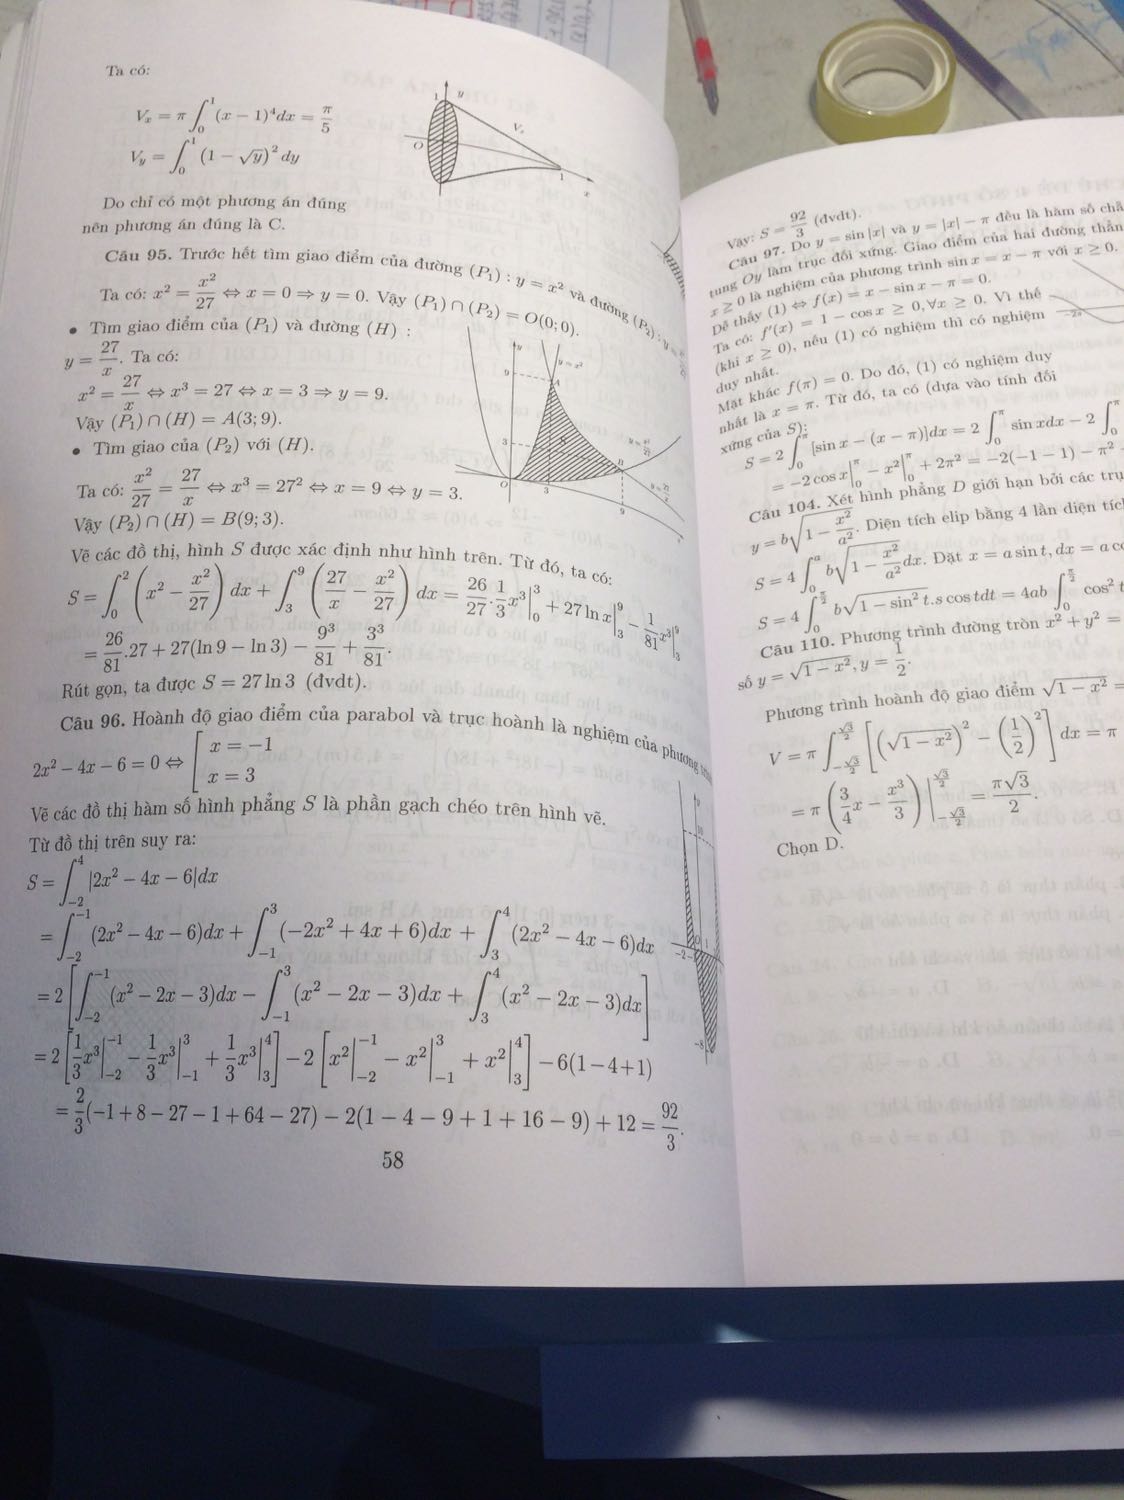 Ta có:
V_x = π∫_0^1 (x − 1)^4 dx = π/5
V_y = ∫_0^1 (1 − √y)^2 dy
Do chỉ có một phương án đúng
nên phương án đúng là C.
Câu 95. Trước hết tìm giao điểm của đường (P_1) : y = x^2 và đường (P_2) : y =
Ta có: x^2 = x^2/27 ⇔ x = 0 ⇒ y = 0. Vậy (P_1) ∩ (P_2) = O(0; 0).
• Tìm giao điểm của (P_1) và đường (H) :
y = 27/x. Ta có:
x^2 = 27/x ⇔ x^3 = 27 ⇔ x = 3 ⇒ y = 9.
Vậy (P_1) ∩ (H) = A(3; 9).
• Tìm giao của (P_2) với (H).
Ta có: x^2/27 = 27/x ⇔ x^3 = 27^2 ⇔ x = 9 ⇔ y = 3.
Vậy (P_2) ∩ (H) = B(9; 3).
Vẽ các đồ thị, hình S được xác định như hình trên. Từ đó, ta có:
S = ∫_0^2 (x^2 − x^2/27) dx + ∫_3^9 (27/x − x^2/27) dx = 26/27 . 1/3 x^3|_0^3 + 27 ln x|_3^9 − 1/81 x^3|_3^9
= 26/81 .27 + 27(ln 9 − ln 3) − 9^3/81 + 3^3/81.
Rút gọn, ta được S = 27 ln 3 (đvdt).
Câu 96. Hoành độ giao điểm của parabol và trục hoành là nghiệm của phương trình
2x^2 − 4x − 6 = 0 ⇔ [ x = −1
x = 3
Vẽ các đồ thị hàm số hình phẳng S là phần gạch chéo trên hình vẽ.
Từ đồ thị trên suy ra:
S = ∫_{−2}^4 |2x^2 − 4x − 6|dx
= ∫_{−2}^{−1} (2x^2 − 4x − 6)dx + ∫_{−1}^3 (−2x^2 + 4x + 6)dx + ∫_3^4 (2x^2 − 4x − 6)dx
= 2[∫_{−2}^{−1} (x^2 − 2x − 3)dx − ∫_{−1}^3 (x^2 − 2x − 3)dx + ∫_3^4 (x^2 − 2x − 3)dx]
= 2[1/3 x^3|_{−2}^{−1} − 1/3 x^3|_{−1}^3 + 1/3 x^3|_3^4] − 2[x^2|_{−2}^{−1} − x^2|_{−1}^3 + x^2|_3^4] − 6(1 − 4 + 1)
= 2/3(−1 + 8 − 27 − 1 + 64 − 27) − 2(1 − 4 − 9 + 1 + 16 − 9) + 12 = 92/3.
58
Vậy: S = 92/3 (đvdt).
Câu 97. Do y = sin |x| và y = |x| − π đều là hàm số
tung Oy làm trục đối xứng. Giao điểm của hai đường
x ≥ 0 là nghiệm của phương trình sin x = x − π với x ≥ 0.
Dễ thấy (1) ⇔ f(x) = x − sin x − π = 0.
Ta có: f'(x) = 1 − cos x ≥ 0, ∀x ≥ 0. Vì thế
(khi x ≥ 0), nếu (1) có nghiệm thì có nghiệm
duy nhất.
Mặt khác f(π) = 0. Do đó, (1) có nghiệm duy
nhất là x = π. Từ đó, ta có (dựa vào tính đối
xứng của S):
S = 2∫_0^π [sin x − (x − π)]dx = 2∫_0^π sin xdx − 2∫_0^π
= −2 cos x|_0^π − x^2|_0^π + 2π^2 = −2(−1 − 1) − π^2
Câu 104. Xét hình phẳng D giới hạn bởi các trục
y = b√(1 − x^2/a^2). Diện tích elip bằng 4 lần diện tích
S = 4∫_0^a b√(1 − x^2/a^2) dx. Đặt x = a sin t, dx = a
S = 4∫_0^{π/2} b√(1 − sin^2 t).s cos tdt = 4ab∫_0^{π/2} cos^2 t
Câu 110. Phương trình đường tròn x^2 + y^2 =
số y = √(1 − x^2), y = 1/2.
Phương trình hoành độ giao điểm √(1 − x^2) =
V = π∫_{−√3/2}^{√3/2} [(√(1 − x^2))^2 − (1/2)^2] dx = π
= π(3/4 x − x^3/3)|_{−√3/2}^{√3/2} = π√3/2.
Chọn D.